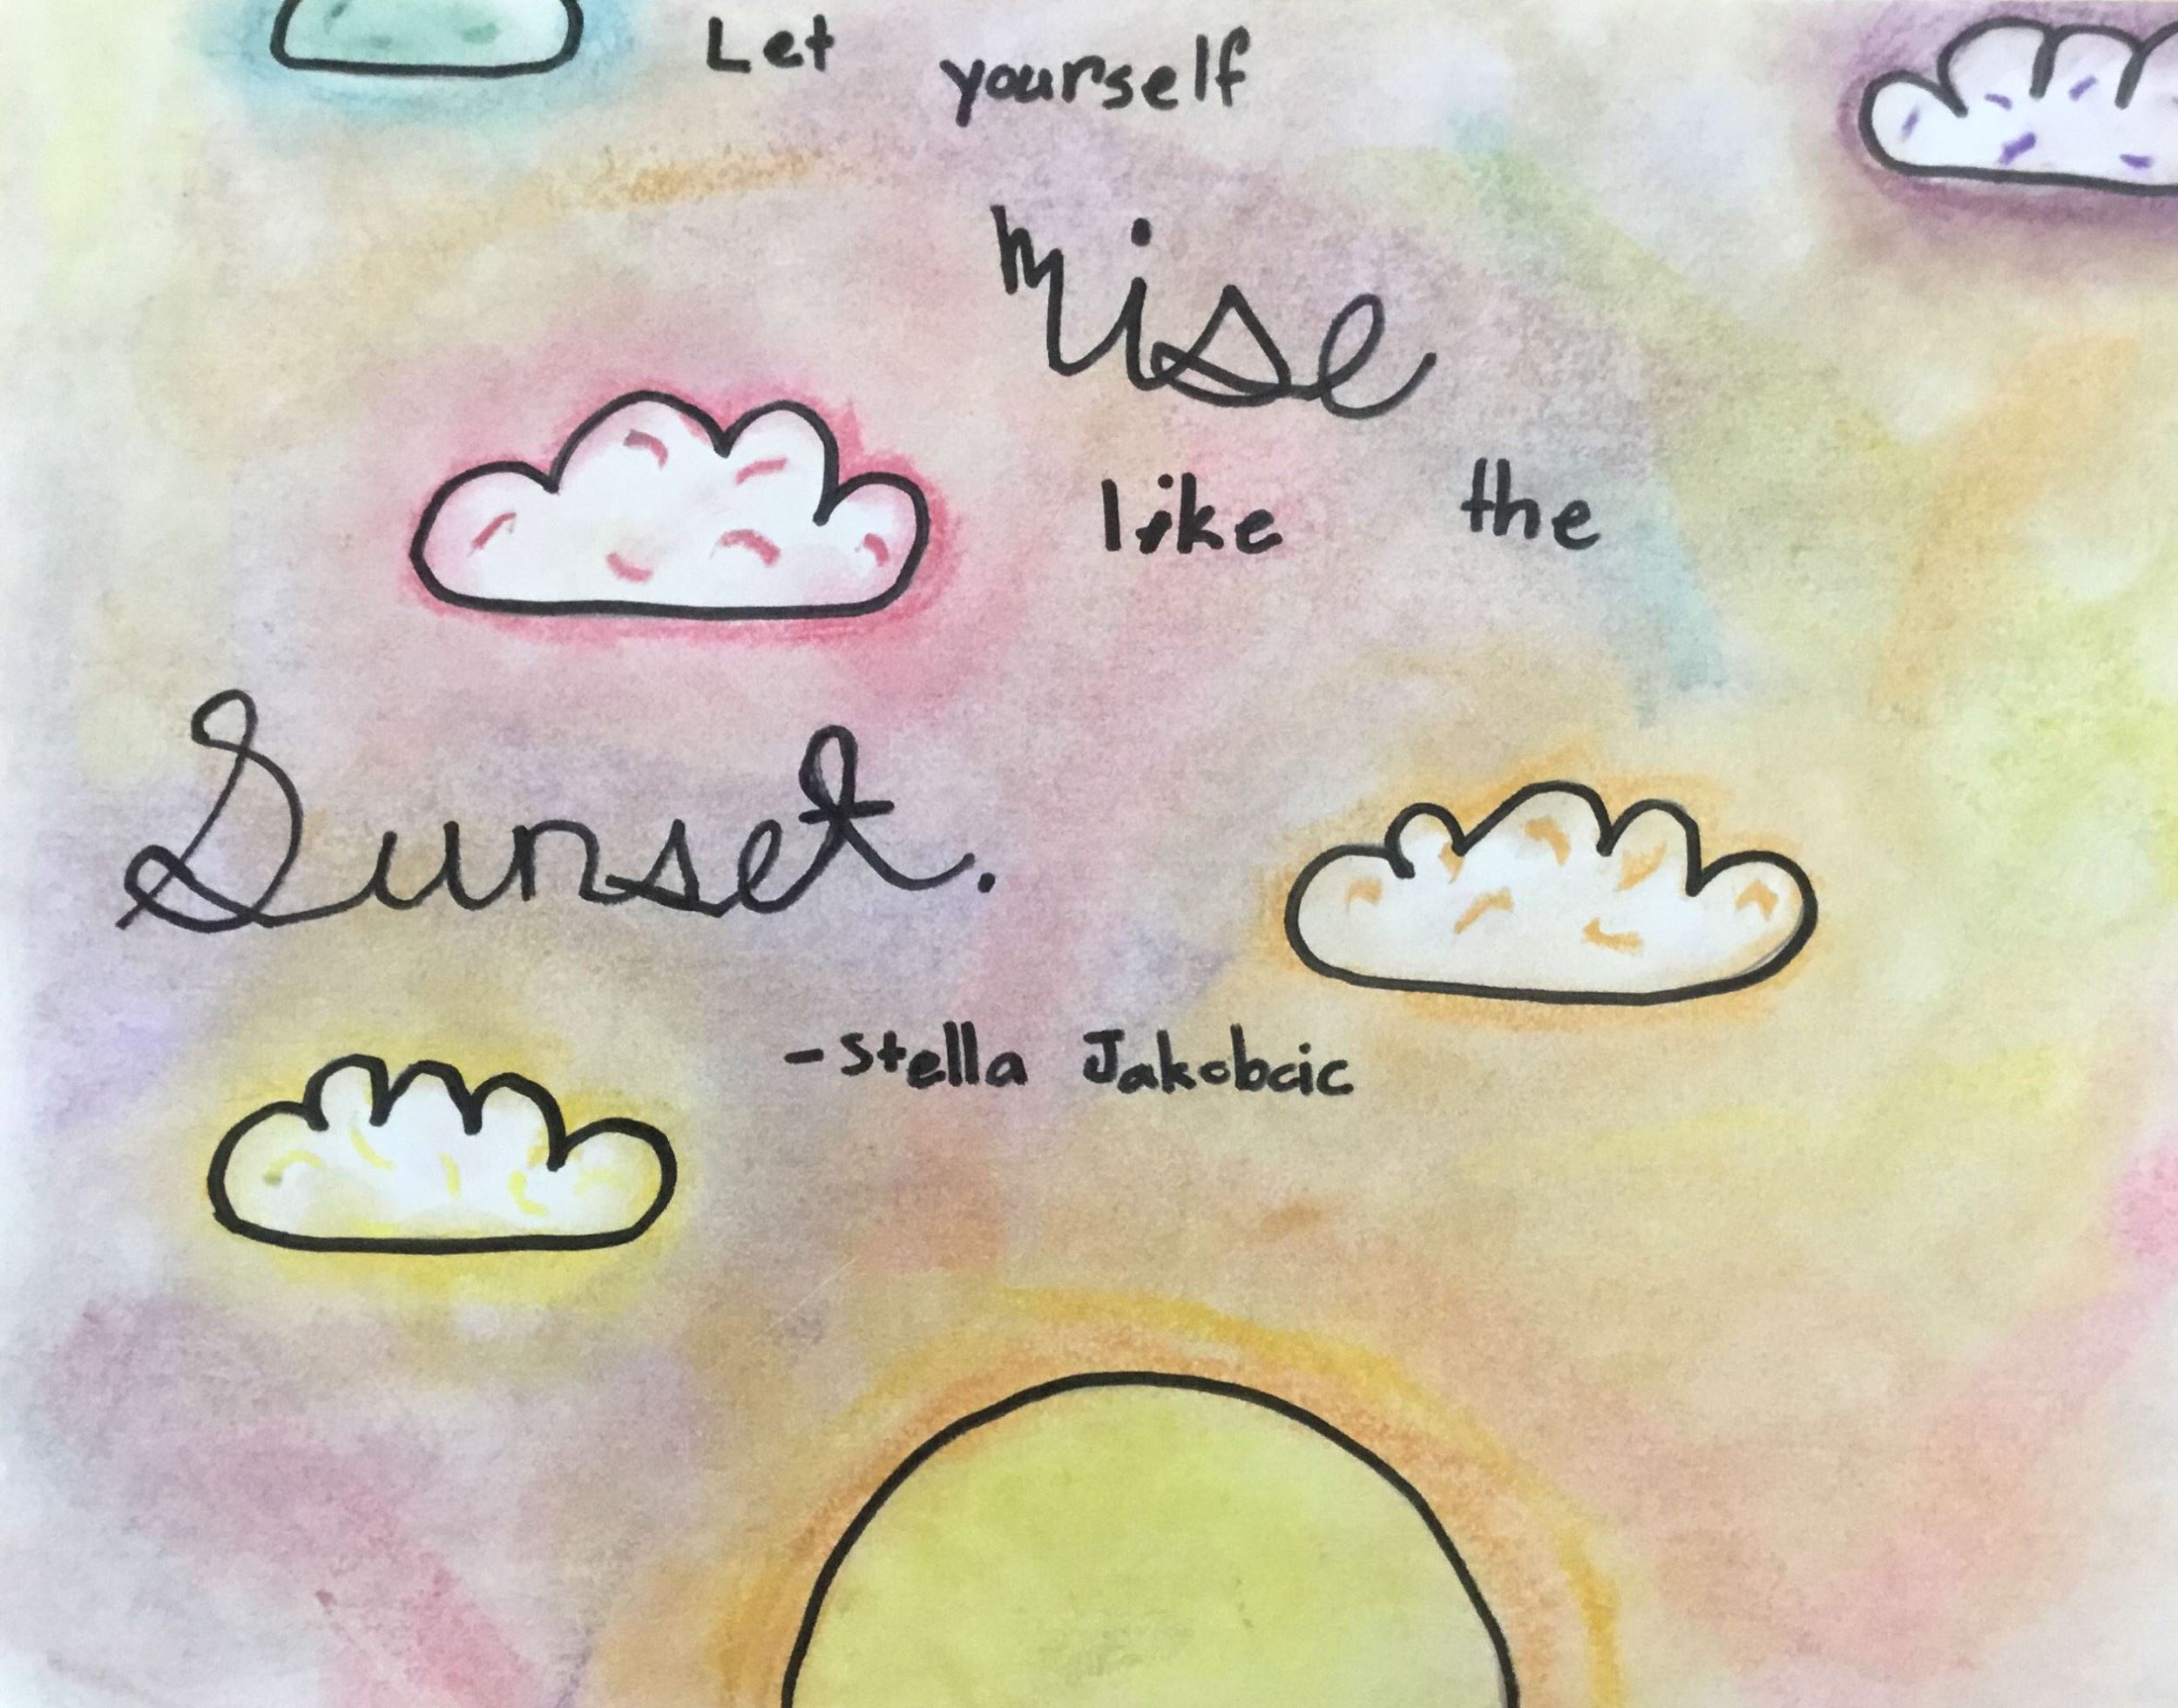 Let yourself
rise
like the
Sunset.
-Stella Jakobcic